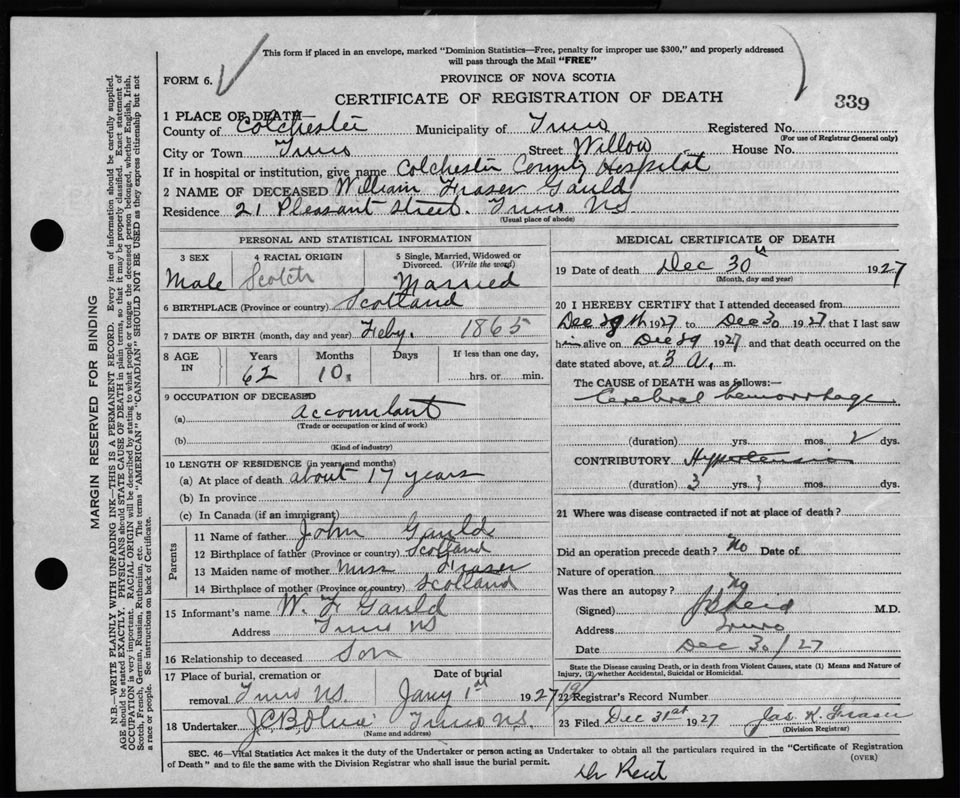 This form if placed in an envelope, marked "Dominion Statistics—Free, penalty for improper use $300," and properly addressed
will pass through the Mail "FREE"
FORM 6.
PROVINCE OF NOVA SCOTIA
CERTIFICATE OF REGISTRATION OF DEATH
339
1 PLACE OF DEATH—
County of Colchester Municipality of Truro Registered No.
(For use of Registrar General only)
City or Town Truro Street Willow House No.
If in hospital or institution, give name Colchester County Hospital
2 NAME OF DECEASED William Fraser Gauld
Residence 21 Pleasant Street. Truro NS
(Usual place of abode)
PERSONAL AND STATISTICAL INFORMATION
3 SEX 4 RACIAL ORIGIN 5 Single, Married, Widowed or
Divorced. (Write the word)
Male Scotch Married
6 BIRTHPLACE (Province or country) Scotland
7 DATE OF BIRTH (month, day and year) Feby. 1865
8 AGE IN Years Months Days If less than one day,
62 10 hrs. or min.
9 OCCUPATION OF DECEASED
(a) Accountant
(Trade or occupation or kind of work)
(b)
(Kind of industry)
10 LENGTH OF RESIDENCE (in years and months)
(a) At place of death about 17 years
(b) In province
(c) In Canada (if an immigrant)
Parents
11 Name of father John Gauld
12 Birthplace of father (Province or country) Scotland
13 Maiden name of mother Miss Fraser
14 Birthplace of mother (Province or country) Scotland
15 Informant's name W. F Gauld
Address Truro NS
16 Relationship to deceased Son
17 Place of burial, cremation or Date of burial
removal Truro NS. Jany 1st 1927
18 Undertaker Truro N.S.
(Name and address)
MEDICAL CERTIFICATE OF DEATH
19 Date of death Dec 30 1927
(Month, day and year)
20 I HEREBY CERTIFY that I attended deceased from
Dec 29th 1927 to Dec 30 1927 that I last saw
him alive on Dec 29 1927 and that death occurred on the
date stated above, at 3 a. m.
The CAUSE of DEATH was as follows:—
Cerebral hemorrhage
(duration) yrs. mos. 2 dys.
CONTRIBUTORY Hypertension
(duration) 3 yrs. mos. dys.
21 Where was disease contracted if not at place of death?
Did an operation precede death? No Date of
Nature of operation
Was there an autopsy? No
(Signed) Reid M.D.
Address Truro
Date Dec 30/27
State the Disease causing Death, or in death from Violent Causes, state (1) Means and Nature of
Injury, (2) whether Accidental, Suicidal or Homicidal.
22 Registrar's Record Number
23 Filed Dec 31st 1927 Jas. K. Fraser
(Division Registrar)
SEC. 46—Vital Statistics Act makes it the duty of the Undertaker or person acting as Undertaker to obtain all the particulars required in the "Certificate of Registration
of Death" and to file the same with the Division Registrar who shall issue the burial permit.
(OVER)
Dr Reid
MARGIN RESERVED FOR BINDING
N.B.—WRITE PLAINLY WITH UNFADING INK—THIS IS A PERMANENT RECORD. Every item of information should be carefully supplied.
AGE should be stated EXACTLY. PHYSICIANS should STATE CAUSE OF DEATH in plain terms, so that it may be properly classified. Exact statement of
OCCUPATION is very important. RACIAL ORIGIN will be described by stating to what people or race the deceased person belonged, whether English, Irish,
Scotch, French, German, Russian, Ruthenian, etc. The terms "AMERICAN" or "CANADIAN" SHOULD NOT BE USED as they express citizenship but not
a race or people. See instructions on back of Certificate.